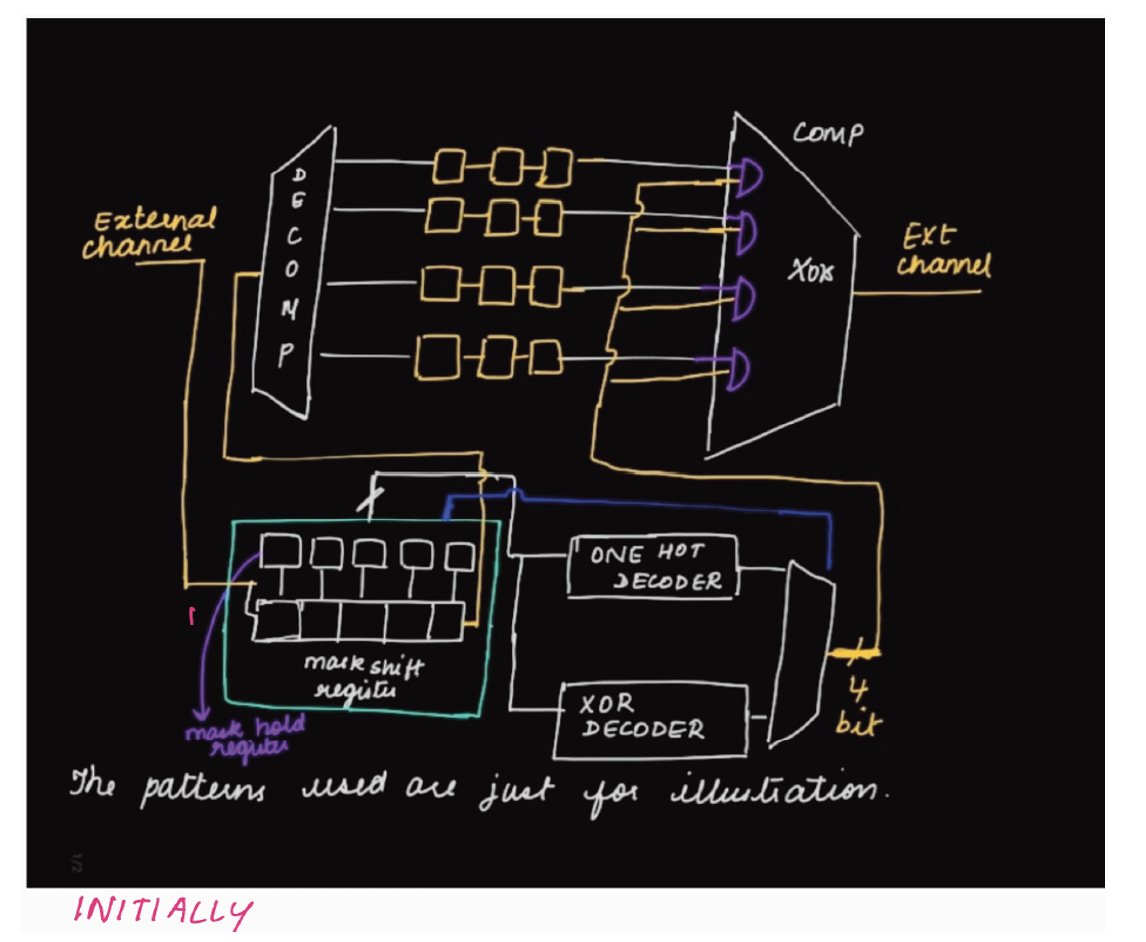 COMP
D
E
C
O
M
P
External
channel
Ext
channel
XOR
ONE HOT
DECODER
1
mask shift
register
XOR
DECODER
4
bit
mask hold
register
The patterns used are just for illustration.
INITIALLY